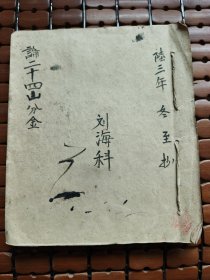 陆三年 冬至抄
刘海科
論二十四山分金